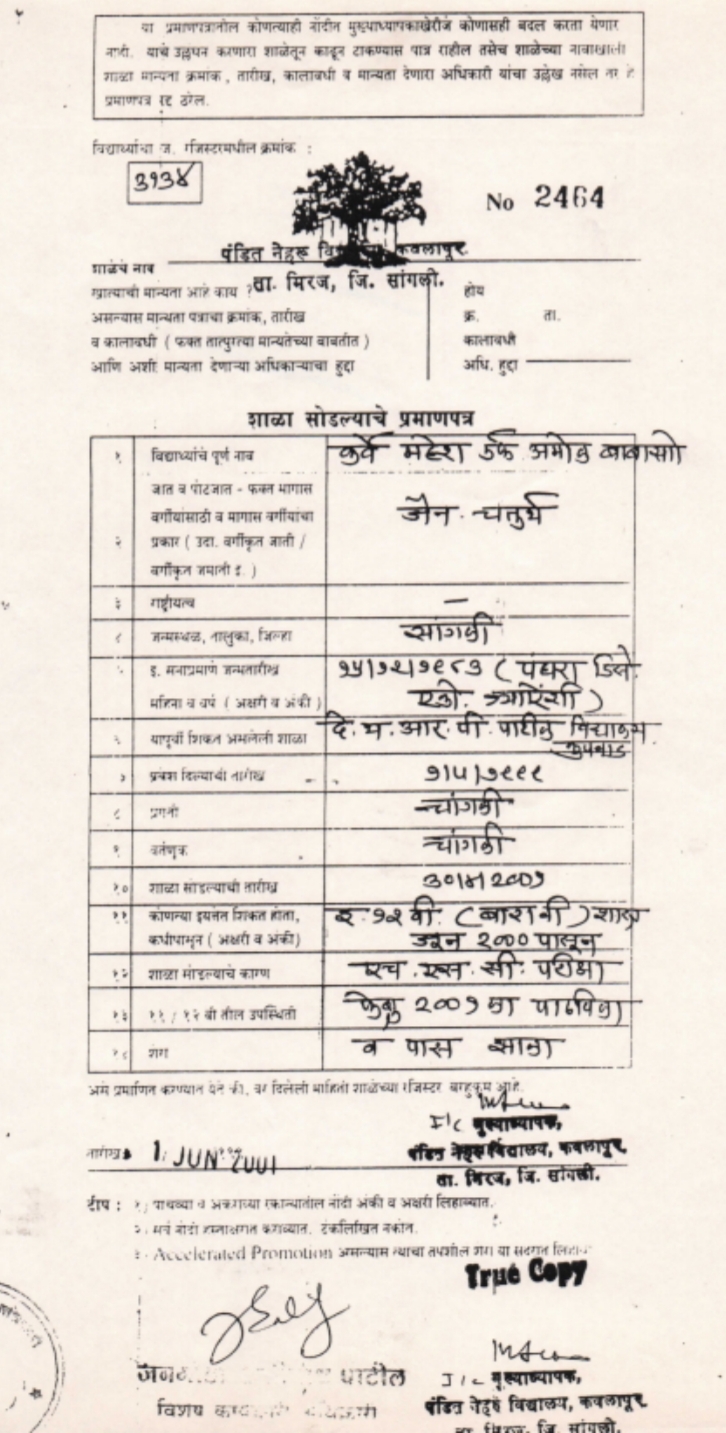 या प्रमाणपत्रातील कोणत्याही नोंदीत मुख्याध्यापकाखेरीज कोणासही बदल करता येणार
नाही. याचे उल्लंघन करणारा शाळेतून काढून टाकण्यास पात्र राहील तसेच शाळेच्या नावाखाली
शाळा मान्यता क्रमांक, तारीख, कालावधी व मान्यता देणारा अधिकारी यांचा उल्लेख नसेल तर हे
प्रमाणपत्र रद्द ठरेल.
विद्यार्थ्याचा ज. रजिस्टरमधील क्रमांक :
३१३४
No 2464
पंडित नेहरू कवलापूर
शाळेचे नाव
ता. मिरज, जि. सांगली.
खात्याची मान्यता आहे काय ? होय
असल्यास मान्यता पत्राचा क्रमांक, तारीख क्र. ता.
व कालावधी ( फक्त तात्पुरत्या मान्यतेच्या बाबतीत ) कालावधी
आणि अशी मान्यता देणाऱ्या अधिकाऱ्याचा हुद्दा अधि. हुद्दा
शाळा सोडल्याचे प्रमाणपत्र
१ विद्यार्थ्याचे पूर्ण नाव कुर्वे महेश उर्फ अमोल बाबासो
जात व पोटजात - फक्त मागास
वर्गीयांसाठी व मागास वर्गीयांचा जैन - चतुर्थ
२ प्रकार ( उदा. वर्गीकृत जाती /
वर्गीकृत जमाती इ. )
३ राष्ट्रीयत्व —
४ जन्मस्थळ, तालुका, जिल्हा सांगली
५ इ. सनाप्रमाणे जन्मतारीख १५/१२/१९८३ ( पंधरा डिसें.
महिना व वर्ष ( अक्षरी व अंकी ) एको. त्र्याऐंशी )
६ यापूर्वी शिकत असलेली शाळा दि. ध. आर. पी. पाटील विद्यालय
कुपवाड
७ प्रवेश दिल्याची तारीख १/५/१९९९
८ प्रगती चांगली
९ वर्तणूक चांगली
१० शाळा सोडल्याची तारीख ३०/४/२००१
११ कोणत्या इयत्तेत शिकत होता, इ. १२ वी. ( बारावी ) शास्त्र
कधीपासून ( अक्षरी व अंकी) जून २००० पासून
१२ शाळा सोडल्याचे कारण एच. एस. सी. परीक्षा
१३ ११ / १२ वी तील उपस्थिती फेब्रु २००१ ला पाठविला
१४ शेरा व पास झाला
असे प्रमाणित करण्यात येते की, वर दिलेली माहिती शाळेच्या रजिस्टर बरहुकूम आहे.
I/c मुख्याध्यापक,
तारीख 1 JUN 2001 पंडित नेहरू विद्यालय, कवलापूर
ता. मिरज, जि. सांगली.
टीप : १) पाचव्या व अकराव्या रकान्यातील नोंदी अंकी व अक्षरी लिहाव्यात.
२. सर्व नोंदी हस्ताक्षरात कराव्यात. टंकलिखित नकोत.
३. Accelerated Promotion असल्यास त्याचा तपशील शेरा या सदरात
True Copy
पाटील
विशेष
I/c मुख्याध्यापक,
पंडित नेहरू विद्यालय, कवलापूर
ता. मिरज, जि. सांगली.